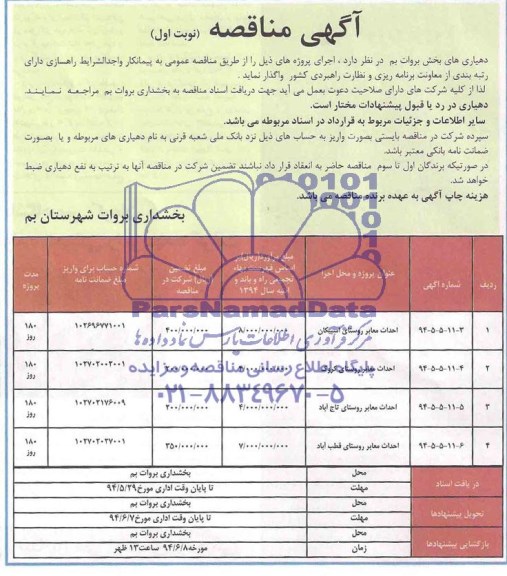 آگهی مناقصه (نوبت اول)
دهیاری های بخش بروات بم در نظر دارد ، اجرای پروژه های ذیل را از طریق مناقصه عمومی به پیمانکار واجدالشرایط راهسازی دارای
رتبه بندی از معاونت برنامه ریزی و نظارت راهبردی کشور واگذار نماید .
لذا از کلیه شرکت های دارای صلاحیت دعوت بعمل می آید جهت دریافت اسناد مناقصه به بخشداری بروات بم مراجعه نمایند.
دهیاری در رد یا قبول پیشنهادات مختار است.
سایر اطلاعات و جزئیات مربوط به قرارداد در اسناد مربوطه می باشد.
سپرده شرکت در مناقصه بایستی بصورت واریز به حساب های ذیل نزد بانک ملی شعبه قرنی به نام دهیاری های مربوطه و یا بصورت
ضمانت نامه بانکی معتبر باشد.
در صورتیکه برندگان اول تا سوم مناقصه حاضر به انعقاد قرار داد نباشند تضمین شرکت در مناقصه آنها به ترتیب به نفع دهیاری ضبط
خواهد شد.
هزینه چاپ آگهی به عهده برنده مناقصه می باشد.
بخشداری بروات شهرستان بم
ردیف شماره آگهی عنوان پروژه و محل اجرا مبلغ شماره حساب برای واریز مبلغ ضمانت نامه مدت پروژه
مبلغ تضمین شرکت در مناقصه
سال ۱۳۹۴
۱ ۹۴-۵-۵-۱۱-۳ احداث معابر روستای ۸/۰۰۰/۰۰۰/۰۰۰ ۴۰۰/۰۰۰/۰۰۰ ۱۰۲۶۹۶۷۷۱۰۰۱ ۱۸۰ روز
۲ ۹۴-۵-۵-۱۱-۴ احداث معابر روستای ۱۰۲۷۰۲۰۰۲۰۰۱ ۱۸۰ روز
۳ ۹۴-۵-۵-۱۱-۵ احداث معابر روستای تاج آباد ۴/۰۰۰/۰۰۰/۰۰۰ ۲۰۰/۰۰۰/۰۰۰ ۱۰۲۷۰۲۱۷۶۰۰۹ ۱۸۰ روز
۴ ۹۴-۵-۵-۱۱-۶ احداث معابر روستای قطب آباد ۷/۰۰۰/۰۰۰/۰۰۰ ۳۵۰/۰۰۰/۰۰۰ ۱۰۲۷۰۲۰۲۷۰۰۱ ۱۸۰ روز
دریافت اسناد محل بخشداری بروات بم
مهلت تا پایان وقت اداری مورخ ۹۴/۵/۲۹
تحویل پیشنهادها محل بخشداری بروات بم
مهلت تا پایان وقت اداری مورخ ۹۴/۶/۷
بازگشایی پیشنهادها محل بخشداری بروات بم
زمان مورخه ۹۴/۶/۸ ساعت ۱۳ ظهر
ParsNamadData
مرکز فرآوری اطلاعات پارس نماد داده ها
پایگاه اطلاع رسانی مناقصه و مزایده
۰۲۱-۸۸۳۴۹۶۷۰-۵